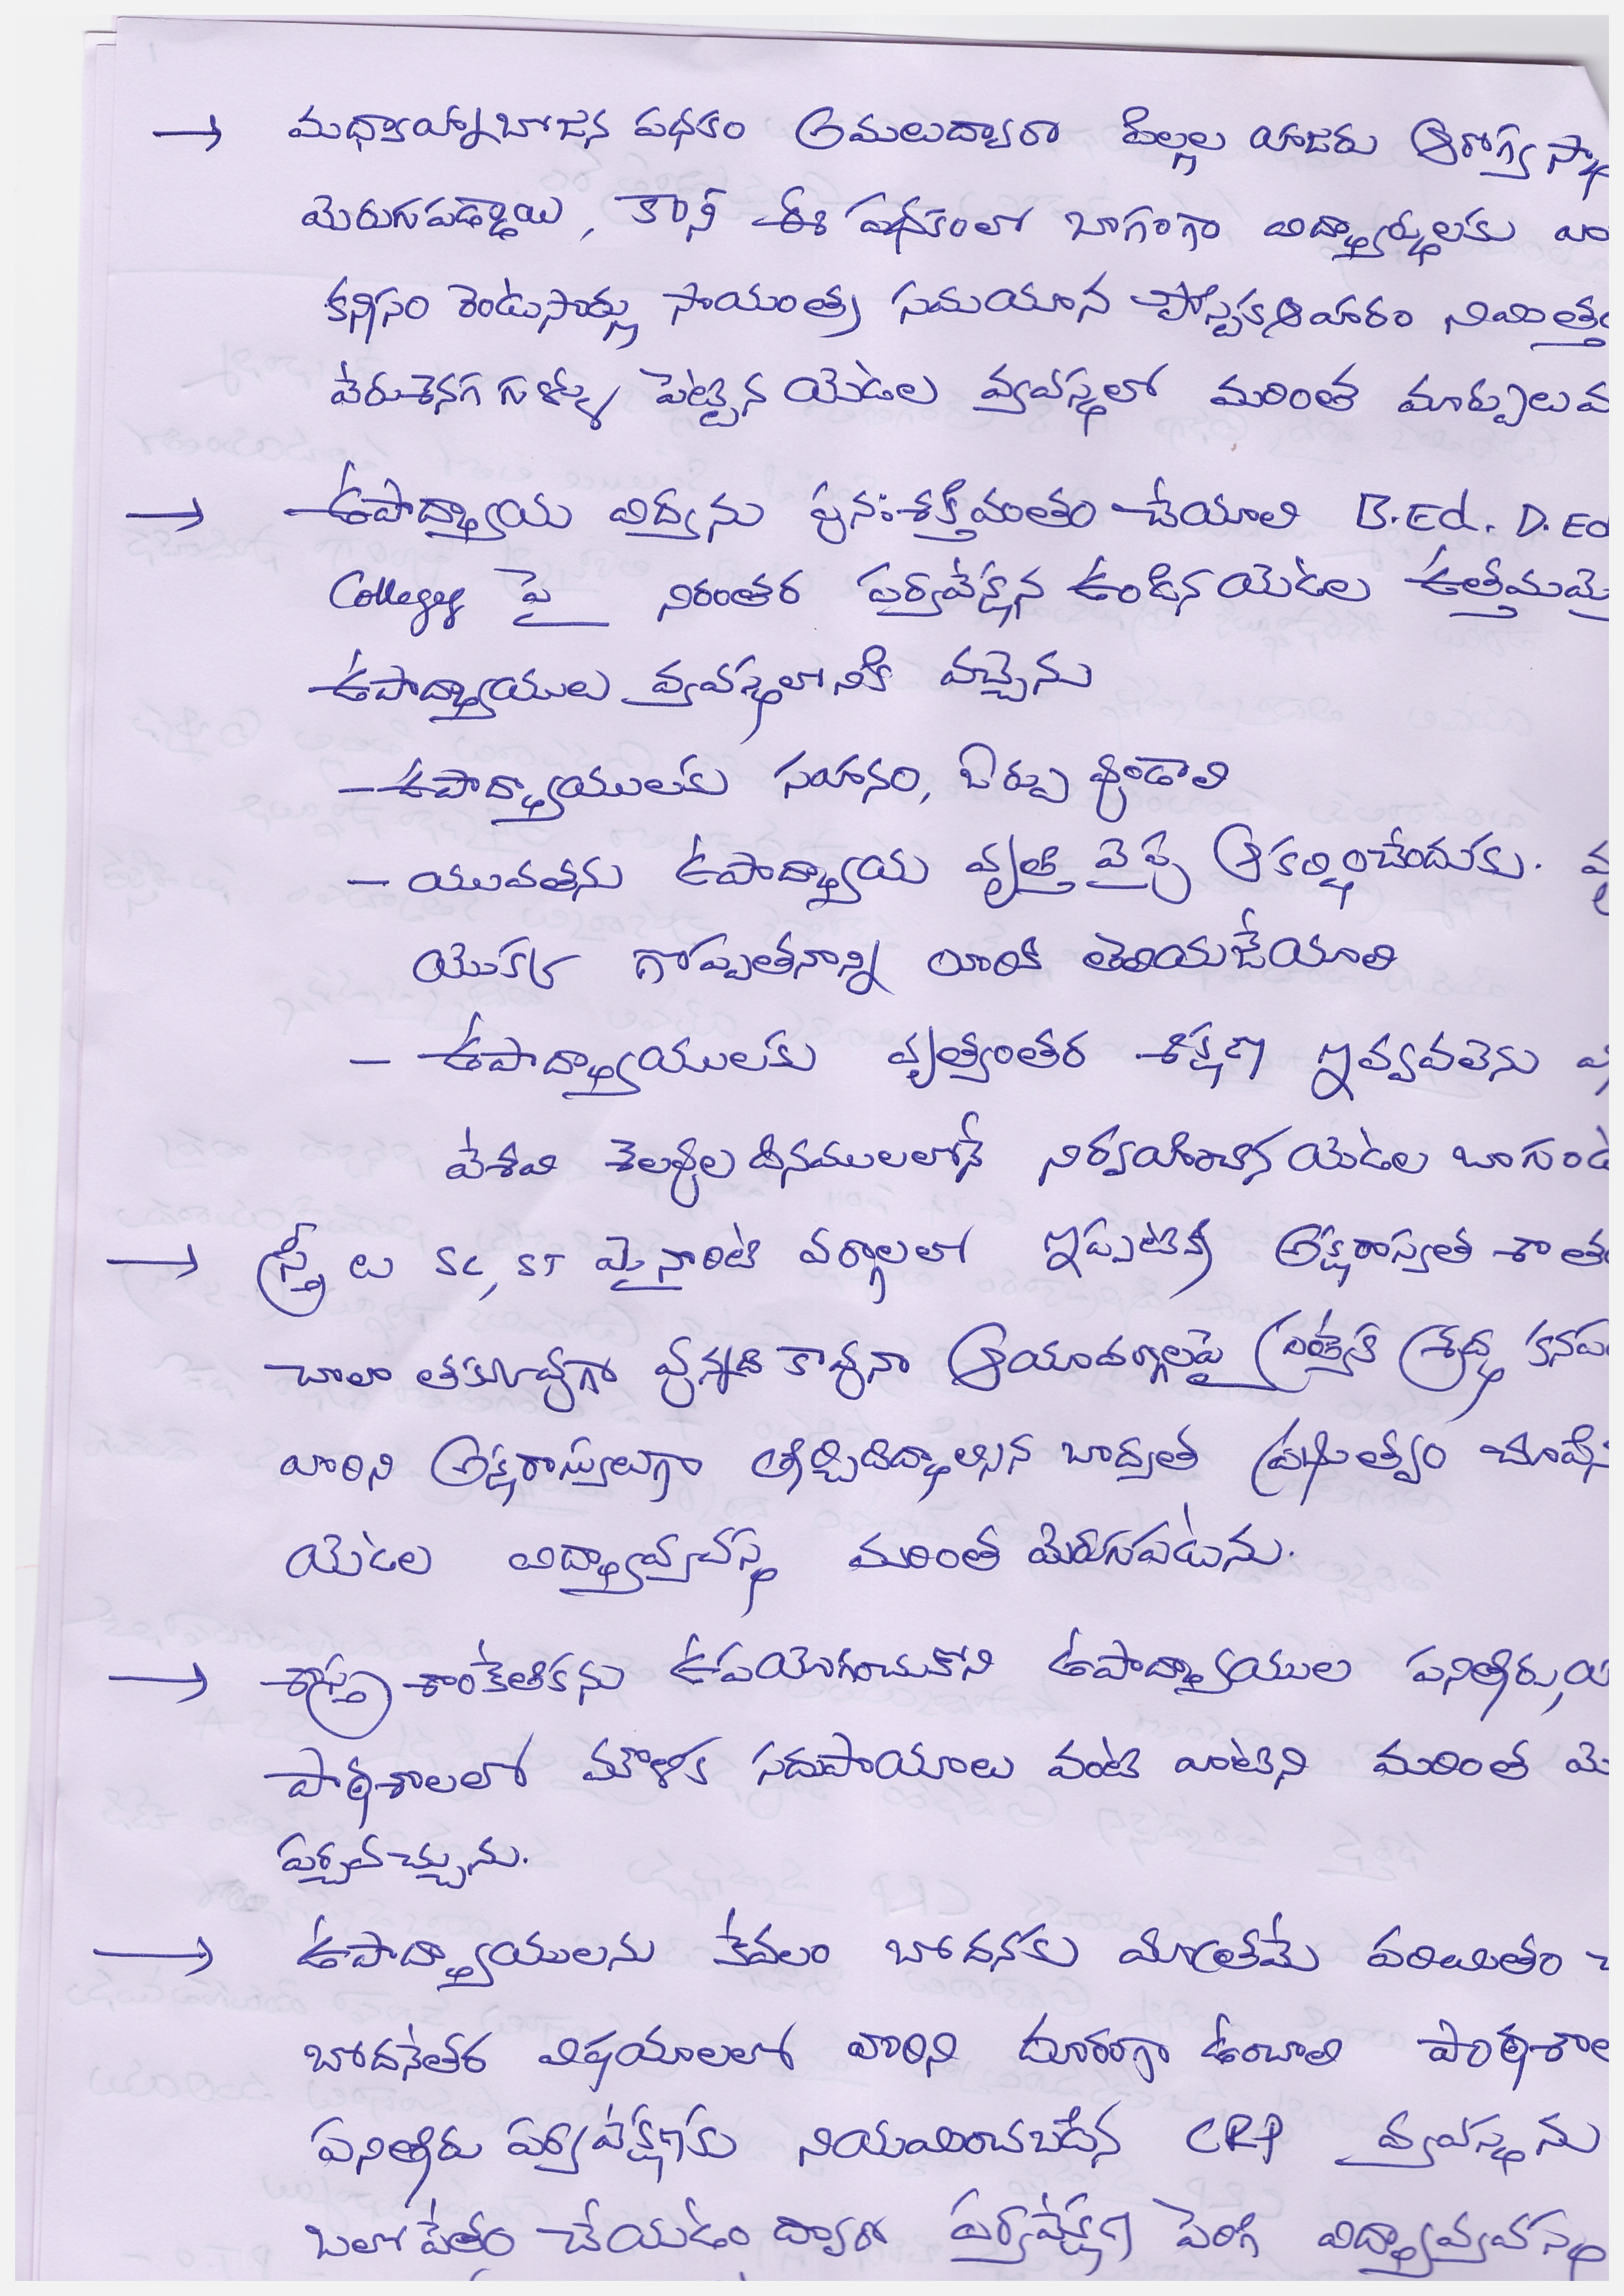 → మధ్యాహ్నాబోజన పధకం అమలుద్వారా పిల్లల హాజరు ఆరోగ్య
మెరుగుపడ్డాయి, కానీ ఈ పధకంలో బాగంగా విద్యార్థులకు
కనీసం రెండుసార్లు సాయంత్ర సమయాన పౌస్టికఆహారం నిమిత్తం
వేరుశెనగ గుళ్ళు పెట్టిన యెడల వ్యవస్థలో మరింత మార్పులు
→ ఉపాద్యాయ విద్యను పునఃశక్తివంతం చేయాలి B.Ed. D.Ed
Colleges పై నిరంతర పర్యవేక్షన ఉండిన యెడల ఉత్తమమై
ఉపాద్యాయుల వ్యవస్థలోనికి వచ్చెను
– ఉపాద్యాయులకు సహనం, ఓర్పు వుండాలి
– యువతను ఉపాద్యాయ వృత్తి వైపు ఆకర్షించేందుకు.
యొక్క గొప్పతనాన్ని వారికి తెలియజేయాలి
– ఉపాద్యాయులకు వృత్యంతర శిక్షణ ఇవ్వవలెను
వేశవి శెలవుల దినములలోనే నిర్వహించిన యెడల బాగుండ
→ స్త్రీ ల SC, ST మైనారిటి వర్గాలలో ఇప్పటికీ అక్షరాస్యత శాతం
చాలా తక్కువగా వున్నది కావున ఆయావర్గాలపై ప్రత్యేక శ్రద్ధ కనప
వారిని అక్షరాస్యులుగా తీర్చిదిద్దాల్సిన బాద్యత ప్రభుత్వం చూపిన
యెడల విద్యావ్యవస్థ మరింత మెరుగుపడును.
→ శాస్త్ర శాంకేతికను ఉపయోగించుకొని ఉపాద్యాయుల పనితీరు,
పాఠశాలలో మౌళిక సదుపాయాలు వంటి వాటిని మరింత మె
పర్చవచ్చును.
→ ఉపాద్యాయులను కేవలం బోదనకు మాత్రమే పరిమితం
బోదనేతర విషయాలలో వారిని దూరంగా ఉంచాలి పాఠశాల
పనితీరు పర్యవేక్షణకు నియమించబడిన CRP వ్యవస్థ ను
బలోపేతం చేయడం ద్వారా పర్యవేక్షణ పెరిగి విద్యావ్యవస్థ